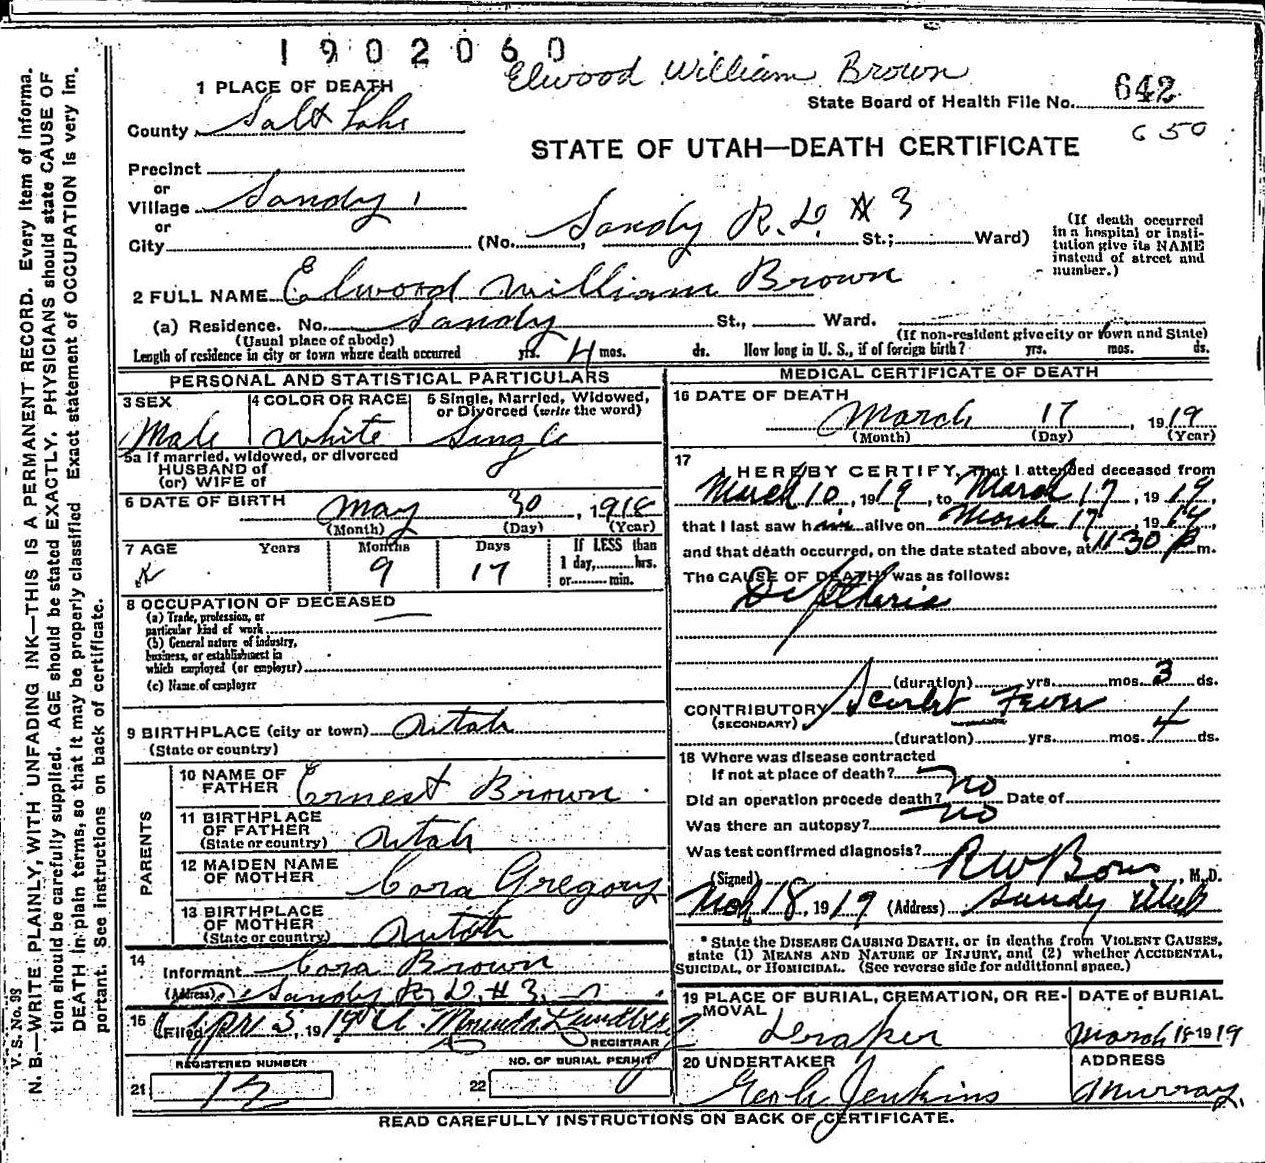 1902060
Elwood William Brown
1 PLACE OF DEATH
State Board of Health File No. 642
County Salt Lake
650
STATE OF UTAH—DEATH CERTIFICATE
Precinct
or
Village Sandy
or
City (No. Sandy R.D. #3 St.; Ward)
(If death occurred in a hospital or insti-
tution give its NAME
instead of street and
number.)
2 FULL NAME Elwood William Brown
(a) Residence. No. Sandy St., Ward.
(Usual place of abode) (If non-resident give city or town and State)
Length of residence in city or town where death occurred yrs. 4 mos. ds. How long in U. S., if of foreign birth? yrs. mos. ds.
PERSONAL AND STATISTICAL PARTICULARS
3 SEX 4 COLOR OR RACE 5 Single, Married, Widowed,
or Divorced (write the word)
Male White Single
5a If married, widowed, or divorced
HUSBAND of
(or) WIFE of
6 DATE OF BIRTH May 30, 1918
(Month) (Day) (Year)
7 AGE Years Months Days If LESS than
1 day, hrs.
or min.
9 17
8 OCCUPATION OF DECEASED
(a) Trade, profession, or
particular kind of work
(b) General nature of industry,
business, or establishment in
which employed (or employer)
(c) Name of employer
9 BIRTHPLACE (city or town) Utah
(State or country)
PARENTS
10 NAME OF
FATHER Ernest Brown
11 BIRTHPLACE
OF FATHER
(State or country) Utah
12 MAIDEN NAME
OF MOTHER Cora Gregory
13 BIRTHPLACE
OF MOTHER
(State or country) Utah
14
Informant Cora Brown
(Address) Sandy R.D. #3
15
Filed Apr 5, 1919
REGISTRAR
REGISTERED NUMBER NO. OF BURIAL PERMIT
21 13 22
MEDICAL CERTIFICATE OF DEATH
16 DATE OF DEATH
March 17, 1919
(Month) (Day) (Year)
17
I HEREBY CERTIFY, That I attended deceased from
March 10, 1919, to March 17, 1919,
that I last saw him alive on March 17, 1919,
and that death occurred, on the date stated above, at 11:30 p m.
The CAUSE OF DEATH was as follows:
Diptheria
(duration) yrs. mos. 3 ds.
CONTRIBUTORY Scarlet Fever
(SECONDARY)
(duration) yrs. mos. 4 ds.
18 Where was disease contracted
If not at place of death?
Did an operation precede death? No Date of
Was there an autopsy? No
Was test confirmed diagnosis?
(Signed) R W , M.D.
Mch 18, 1919 (Address) Sandy Utah
* State the DISEASE CAUSING DEATH, or in deaths from VIOLENT CAUSES,
state (1) MEANS AND NATURE OF INJURY, and (2) whether ACCIDENTAL,
SUICIDAL, or HOMICIDAL. (See reverse side for additional space.)
19 PLACE OF BURIAL, CREMATION, OR RE-
MOVAL DATE of BURIAL
Draper March 18 1919
20 UNDERTAKER ADDRESS
Jenkins Murray
READ CAREFULLY INSTRUCTIONS ON BACK OF CERTIFICATE.
V. S. No. 98
N. B.—WRITE PLAINLY, WITH UNFADING INK—THIS IS A PERMANENT RECORD. Every item of informa-
tion should be carefully supplied. AGE should be stated EXACTLY. PHYSICIANS should state CAUSE OF
DEATH in plain terms, so that it may be properly classified. Exact statement of OCCUPATION is very im-
portant. See instructions on back of certificate.